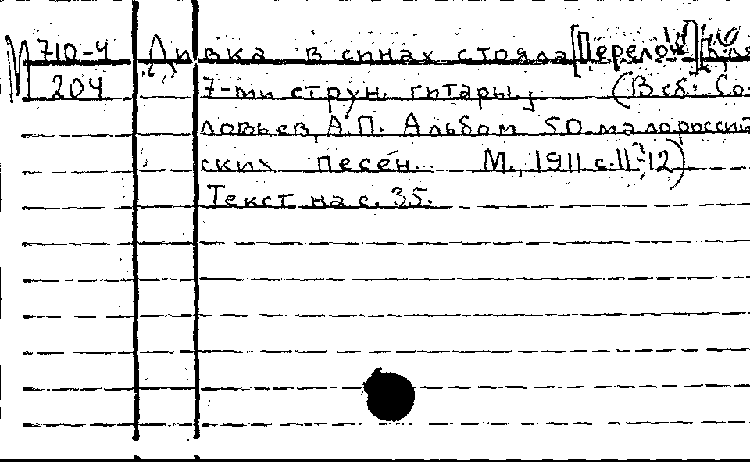 М 710-4 Дивка в синах стояла [Перелож.] для
204 7-ми струн. гитары. (В сб: Со-
ловьев, А.П. Альбом 50 малороссий
ских песен. М., 1911 с. 11-12)
Текст на с. 35.